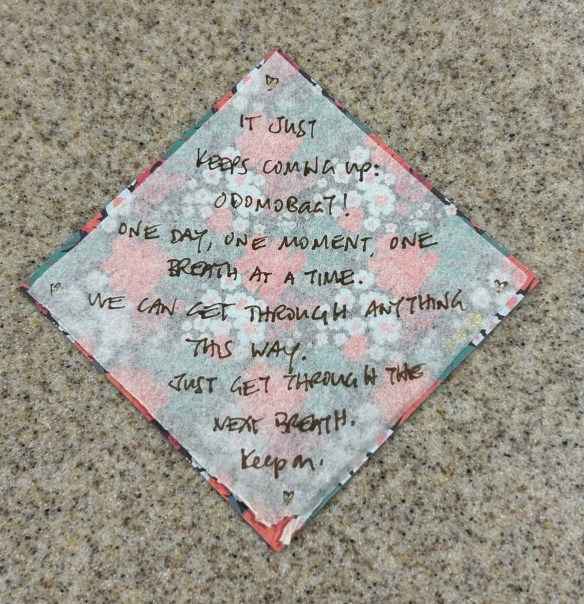 IT JUST
KEEPS COMING UP:
ODOMOBAAT!
ONE DAY, ONE MOMENT, ONE
BREATH AT A TIME.
WE CAN GET THROUGH ANYTHING
THIS WAY.
JUST GET THROUGH THE
NEXT BREATH.
Keep on.